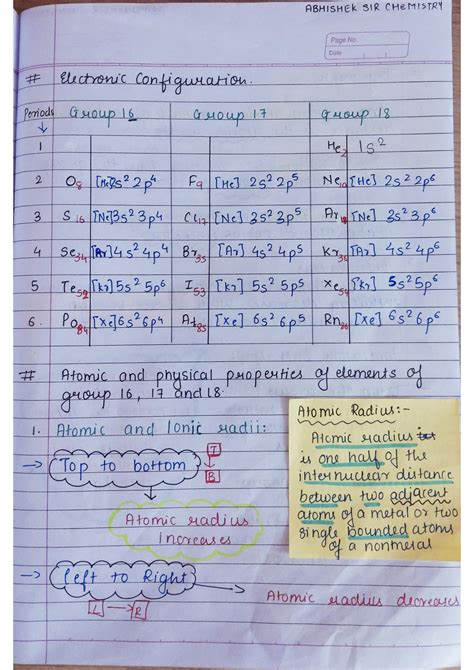 ABHISHEK SIR CHEMISTRY
Page No.
Date
# Electronic Configuration.
Periods Group 16 Group 17 Group 18
1 He2 1s2
2 O8 [He]2s2 2p4 F9 [He] 2s2 2p5 Ne10 [He] 2s2 2p6
3 S16 [Ne]3s2 3p4 Cl17 [Ne] 3s2 3p5 Ar18 [Ne] 3s2 3p6
4 Se34 [Ar]4s2 4p4 Br35 [Ar] 4s2 4p5 Kr36 [Ar] 4s2 4p6
5 Te52 [Kr]5s2 5p6 I53 [Kr] 5s2 5p5 Xe54 [Kr] 5s2 5p6
6. Po84 [Xe]6s2 6p4 At85 [Xe] 6s2 6p5 Rn86 [Xe] 6s2 6p6
# Atomic and physical properties of elements of
group 16, 17 and 18.
1. Atomic and Ionic radii:
→ Top to bottom T
B
Atomic radius
increases
Atomic Radius:-
Atomic radius
is one half of the
internuclear distance
between two adjacent
atoms of a metal or two
single bounded atoms
of a nonmetal
→ Left to Right
L → R
Atomic radius decreases